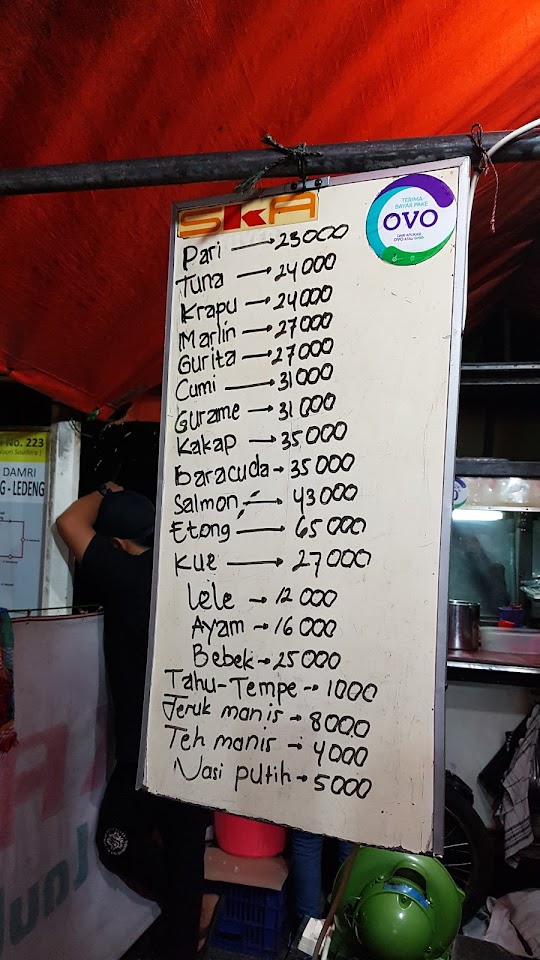 SKA
TERIMA
BAYAR PAKE
OVO
Pari → 23000
Tuna → 24000
Krapu → 24000
Marlin → 27000
Gurita → 27000
Cumi → 31000
Gurame → 31000
Kakap → 35000
Baracuda → 35000
Salmon → 43000
Etong → 65000
Kue → 27000
Lele → 12000
Ayam → 16000
Bebek → 25000
Tahu-Tempe → 1000
Jeruk manis → 8000
Teh manis → 4000
Nasi putih → 5000
No. 223
DAMRI
G - LEDENG